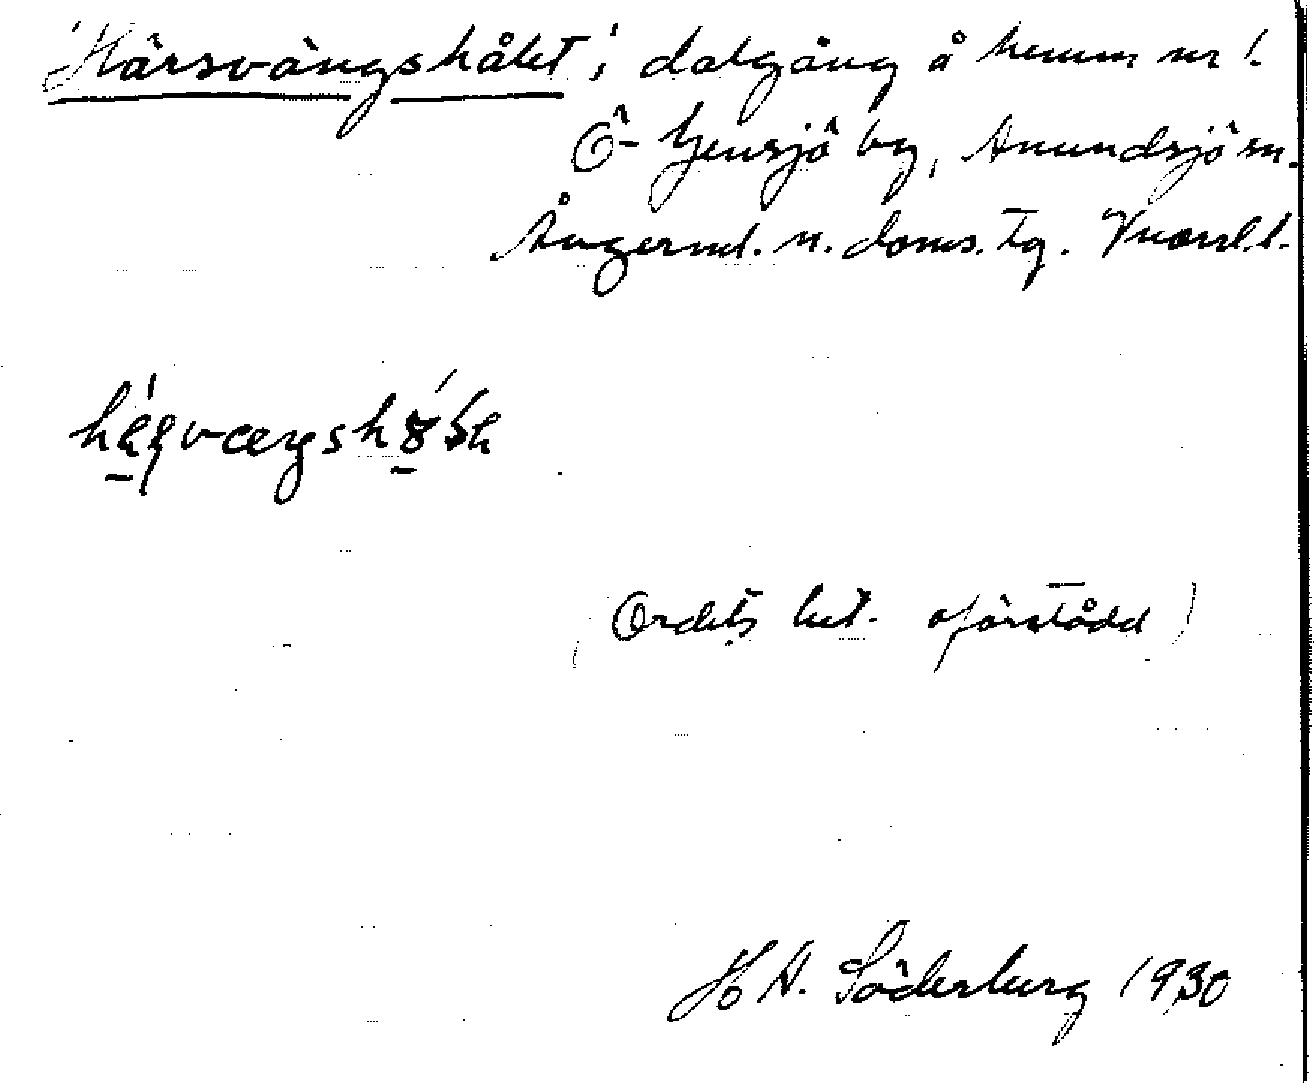 'Hårsvängshålet'; dalgång å hemm nr 1.
Ö- Gensjö by, Anundsjö sn.
Ångermd. n. doms. tg. Vnorrl. l.
(Ordets bet. oförstådd)
H A. Söderberg 1930